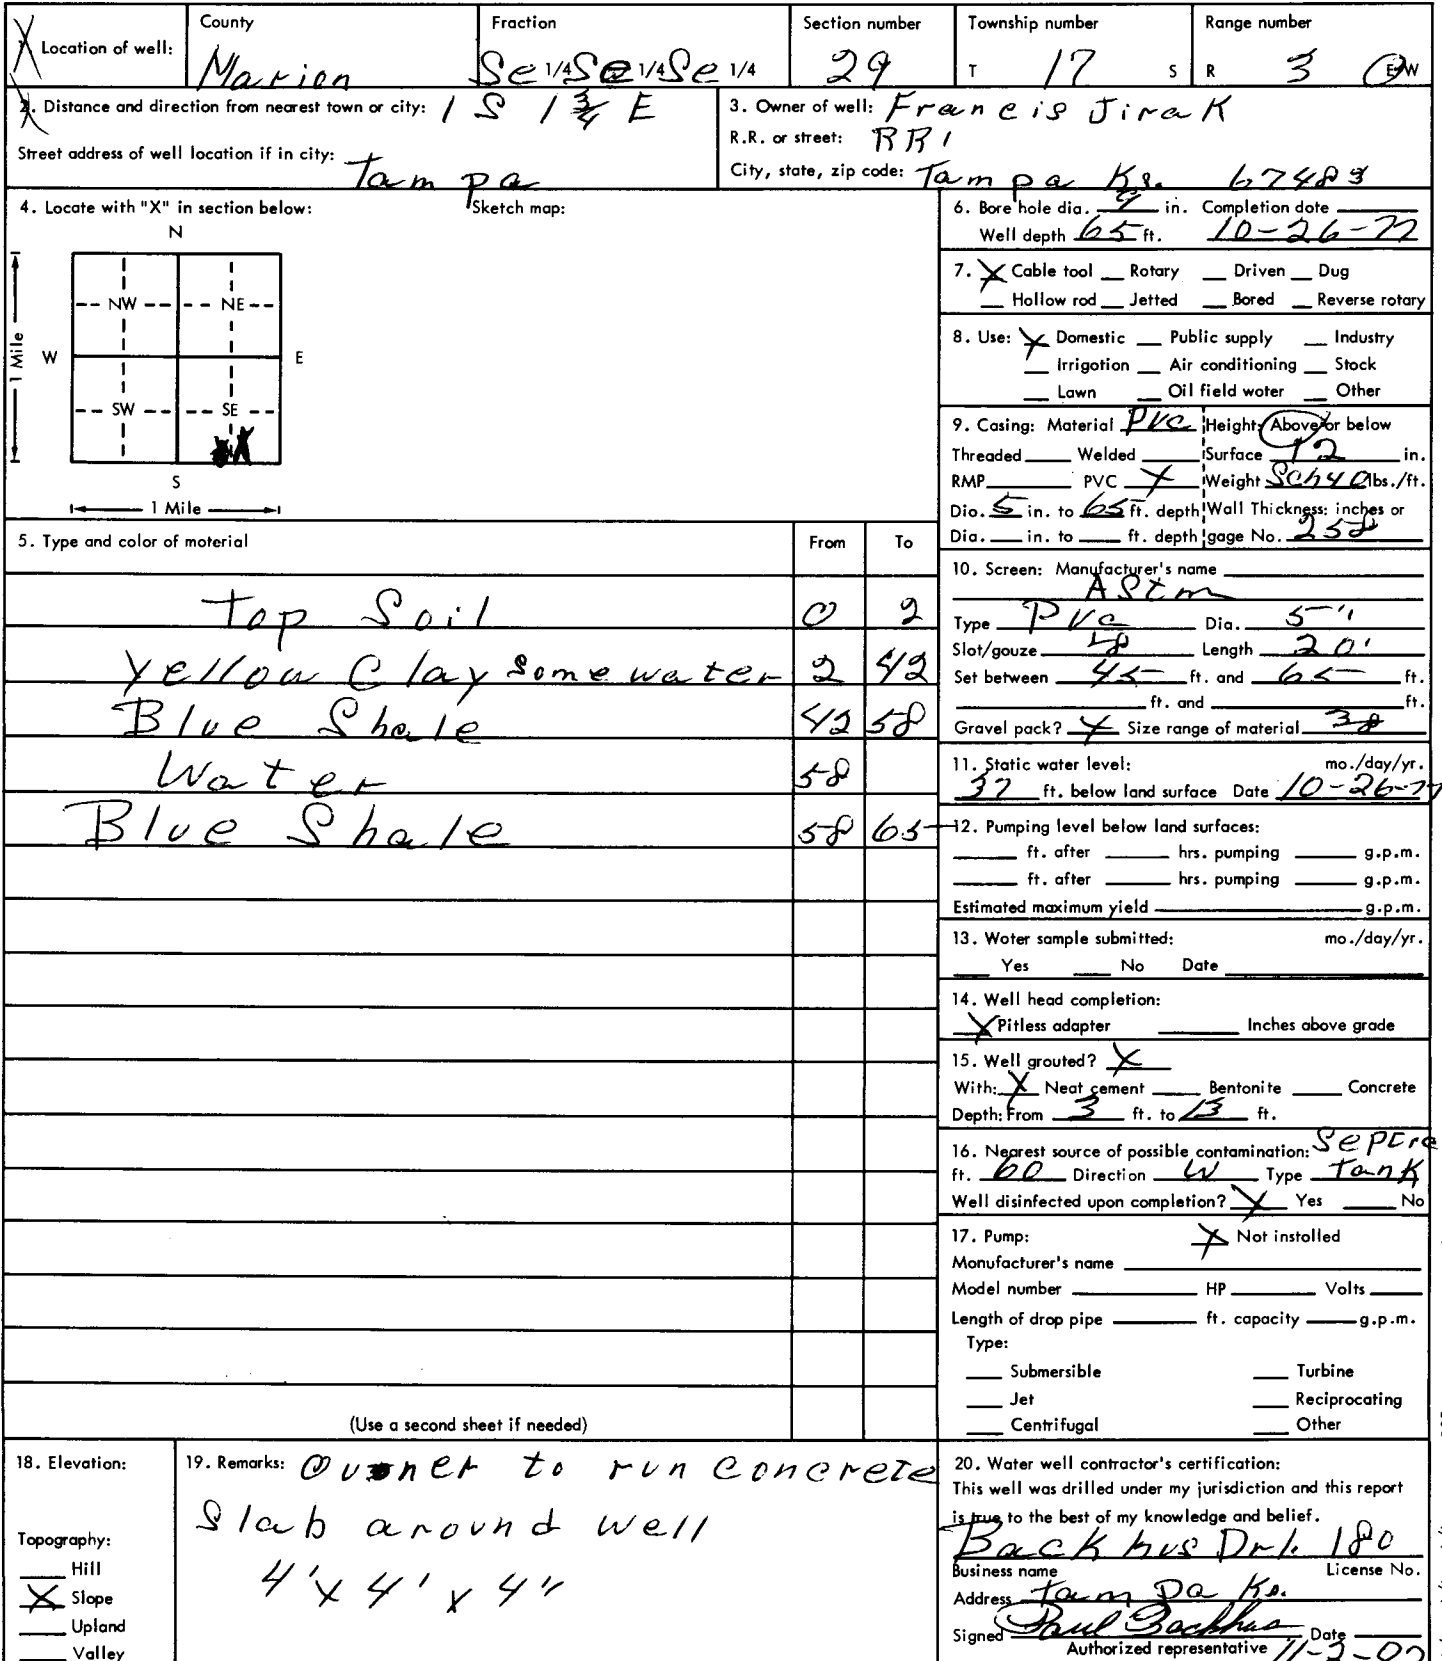 County Fraction Section number Township number Range number
1. Location of well: Marion Se 1/4 Se 1/4 Se 1/4 29 T 17 S R 3 E/W
2. Distance and direction from nearest town or city: 1 S 1 3/4 E
Street address of well location if in city: Tampa
3. Owner of well: Francis Jirak
R.R. or street: RR1
City, state, zip code: Tampa Ks. 67483
4. Locate with "X" in section below: Sketch map:
N
NW NE
W E
1 Mile
SW SE
X
S
1 Mile
5. Type and color of material From To
Top Soil 0 2
Yellow Clay some water 2 42
Blue Shale 42 58
Water 58
Blue Shale 58 65
(Use a second sheet if needed)
6. Bore hole dia. 9 in. Completion date
Well depth 65 ft. 10-26-77
7. X Cable tool __ Rotary __ Driven __ Dug
__ Hollow rod __ Jetted __ Bored __ Reverse rotary
8. Use: X Domestic __ Public supply __ Industry
__ Irrigation __ Air conditioning __ Stock
__ Lawn __ Oil field water __ Other
9. Casing: Material PVC Height: Above or below
Threaded ____ Welded ____ Surface 12 in.
RMP ____ PVC X Weight Sch40 lbs./ft.
Dia. 5 in. to 65 ft. depth Wall Thickness: inches or
Dia. __ in. to __ ft. depth gage No. 258
10. Screen: Manufacturer's name
AStm
Type PVC Dia. 5"
Slot/gauze Length 20'
Set between 45 ft. and 65 ft.
____ ft. and ____ ft.
Gravel pack? X Size range of material
11. Static water level: mo./day/yr.
37 ft. below land surface Date 10-26-77
12. Pumping level below land surfaces:
____ ft. after ____ hrs. pumping ____ g.p.m.
____ ft. after ____ hrs. pumping ____ g.p.m.
Estimated maximum yield ____ g.p.m.
13. Water sample submitted: mo./day/yr.
__ Yes __ No Date ____
14. Well head completion:
X Pitless adapter ____ Inches above grade
15. Well grouted? X
With: X Neat cement ____ Bentonite ____ Concrete
Depth: From 3 ft. to 13 ft.
16. Nearest source of possible contamination: Septic
ft. 60 Direction W Type Tank
Well disinfected upon completion? X Yes ____ No
17. Pump: X Not installed
Manufacturer's name ____
Model number ____ HP ____ Volts ____
Length of drop pipe ____ ft. capacity ____ g.p.m.
Type:
__ Submersible __ Turbine
__ Jet __ Reciprocating
__ Centrifugal __ Other
18. Elevation:
Topography:
__ Hill
X Slope
__ Upland
__ Valley
19. Remarks: Owner to run concrete
Slab around well
4' x 4' x 4"
20. Water well contractor's certification:
This well was drilled under my jurisdiction and this report
is true to the best of my knowledge and belief.
Backhus Drl. 180
Business name License No.
Address Tampa Ks.
Signed Paul Backhus Date
Authorized representative